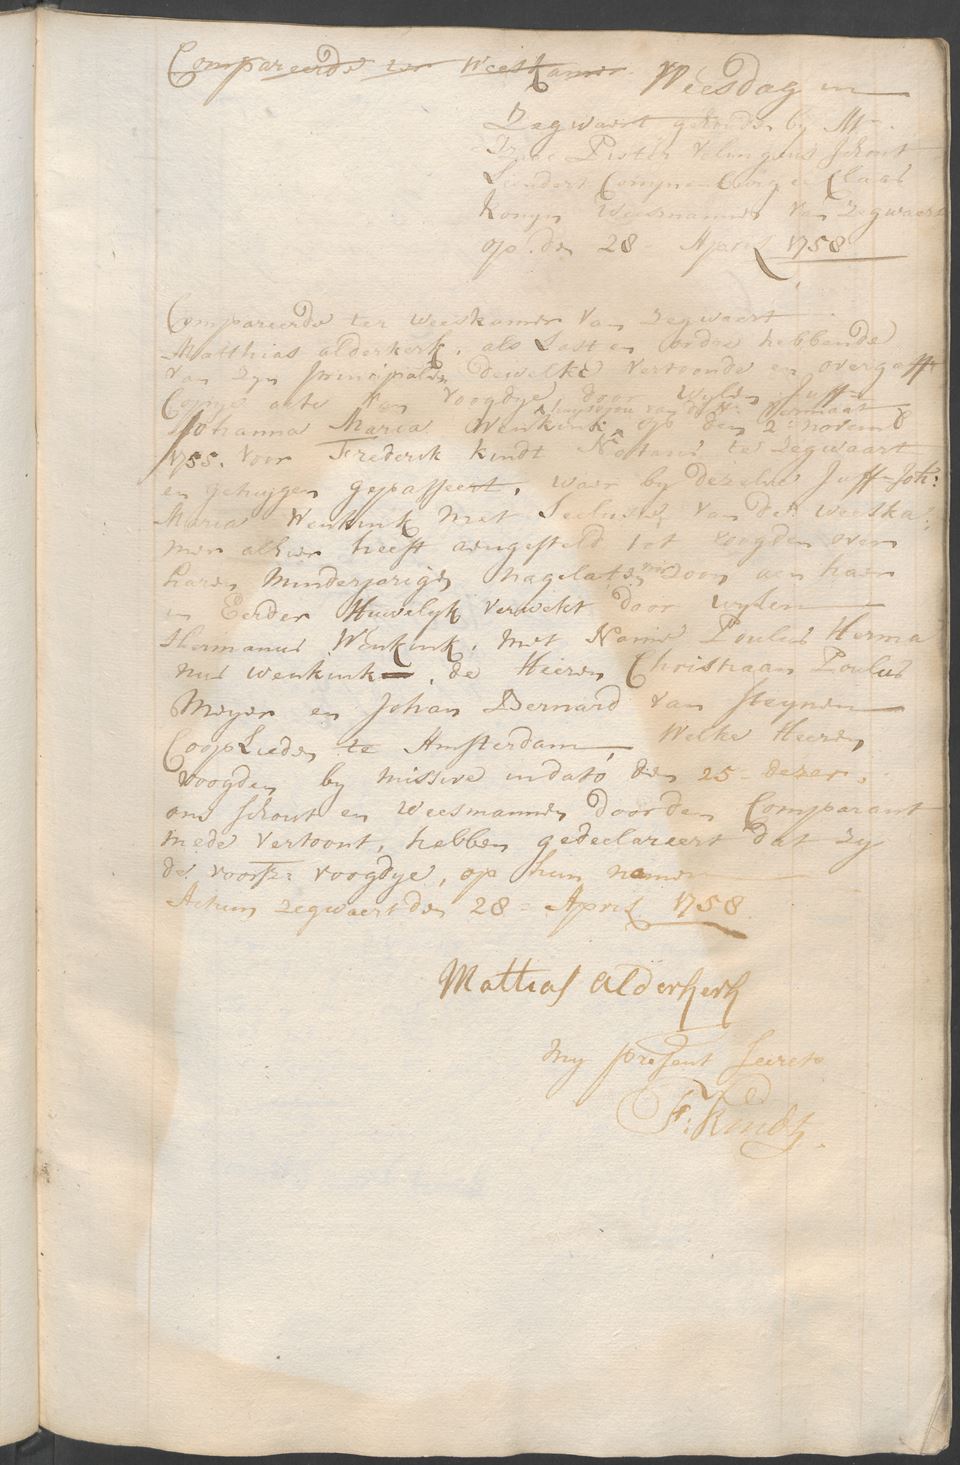 Compareerde ter Weeskamer Weesdag in
Zegwaert gehouden by Mr
Pieter schout
Leendert Compeer en Claas
Konyn Weesmannen van Zegwaert
op den 28 April 1758
Compareerde ter weeskamer van Zegwaert
Matthias alderkerk, als Last en ordre hebbende
van zyn principalen dewelke vertoonde en overgaff
Copye acte van voogdye door wylen Juffr
huysvrou van de Hr Vermaat
Johanna Maria Wenkink op den 2e novemb
1755. voor Frederik Kindt Nots te Zegwaart
en getuygen gepasseert, waer by dezelve Juff Joh:
Maria Wenkink met Seclusie van de weeska:
mer alhier heeft aengesteld tot voogden over
haren minderjarigen nagelaten zoon aen haer
in Eerder Huwelyk verwekt door wylen
Hermanus Wenkink, met Name Poulus Herma
nus wenkink, de Heeren Christiaan Poulus
Meyer en Johan Bernard van Steynen
CoopLieden te Amsterdam, Welke Heeren
voogden by missive in dato den 25 dezer,
ons schout en weesmannen door den Comparant
mede vertoont, hebben gedeclareert dat zy
de voorsz: voogdye, op hun namen
Actum zegwaert den 28 April 1758
Mattias alderkerk
My present Secrets
F: Kindt